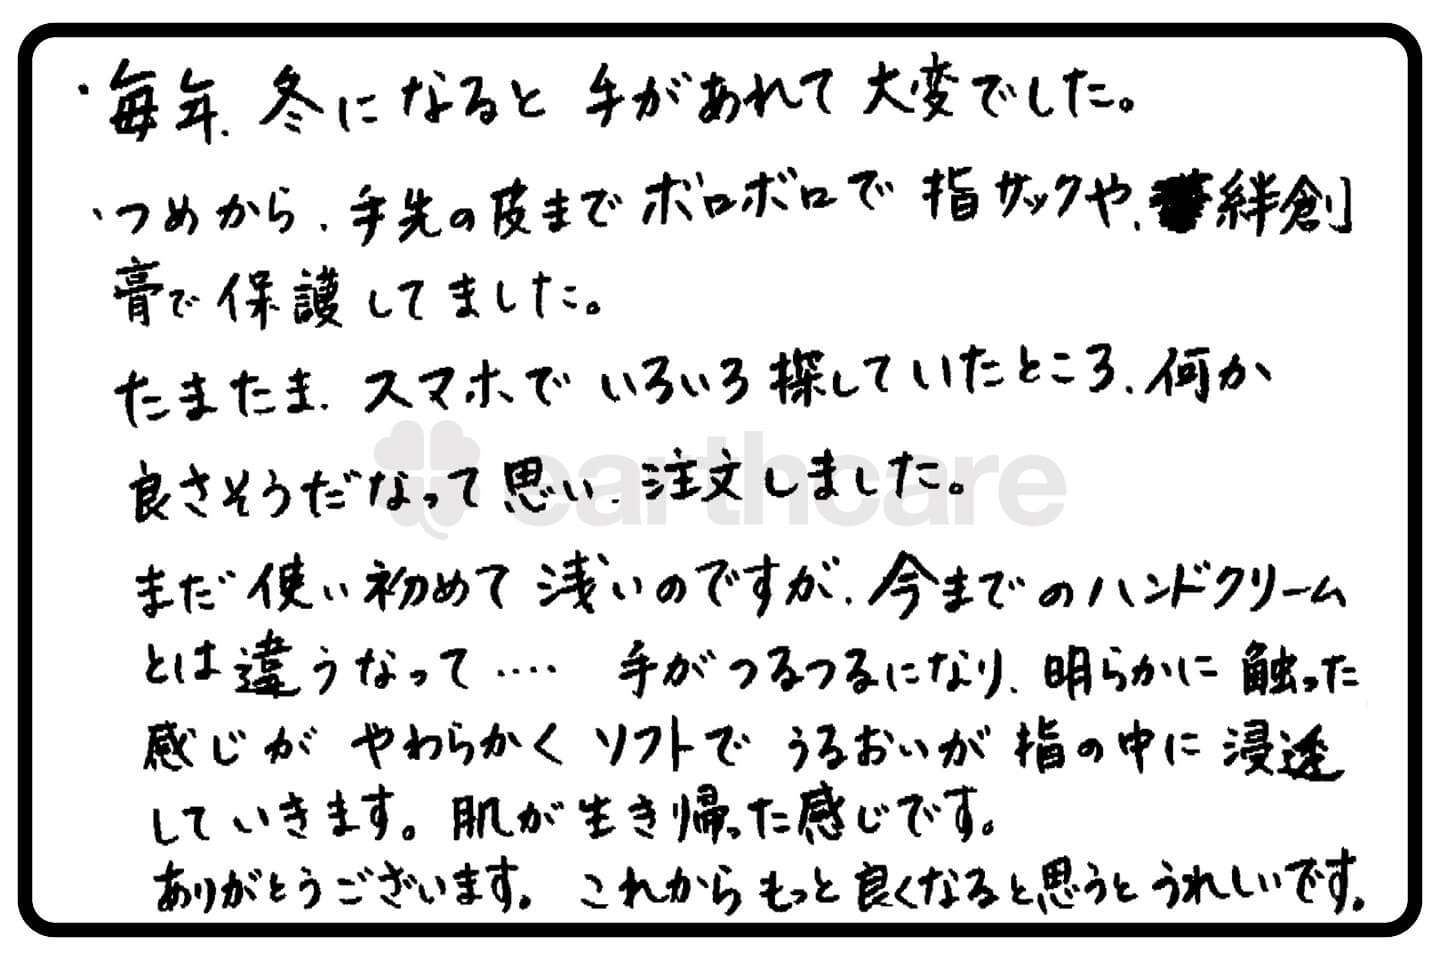 ・毎年、冬になると手があれて大変でした。
・つめから、手先の皮までボロボロで指サックや、絆創
膏で保護してました。
たまたま、スマホでいろいろ探していたところ、何か
良さそうだなって思い、注文しました。
earthcare
まだ使い初めて浅いのですが、今までのハンドクリーム
とは違うなって‥‥ 手がつるつるになり、明らかに触った
感じがやわらかくソフトでうるおいが指の中に浸透
していきます。肌が生き帰った感じです。
ありがとうございます。これからもっと良くなると思うとうれしいです。